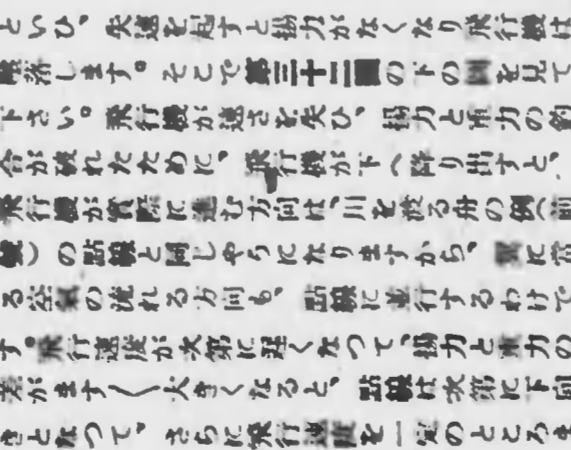 といひ、失速を起すと揚力がなくなり飛行機は
墜落します。そこで第三十二圖の下の圖を見て
下さい。飛行機が速さを失ひ、揚力と重力の釣
合が破れたために、飛行機が下へ降り出すと、
飛行機が實際に進む方向は、川を渡る舟の例(前
)の點線と同じやうになりますから、翼に當
る空氣の流れる方向も、點線に並行するわけで
す。飛行速度が次第に遲くなつて、揚力と重力の
差がます〱大きくなると、點線は次第に下向
きとなつて、さらに飛行速度を一定のところま